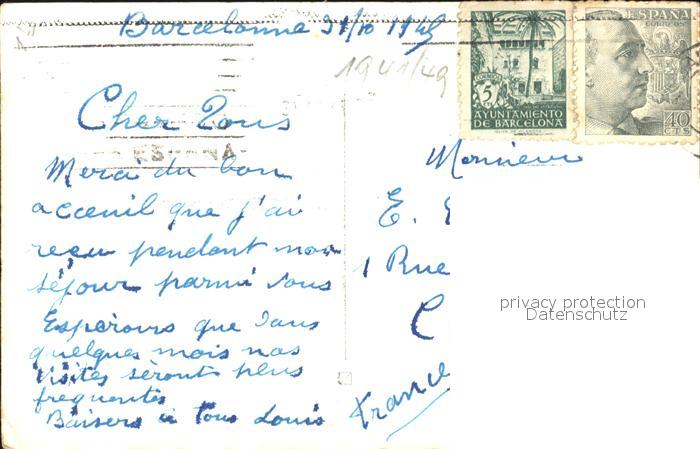 Barcelonne 31/10 1949
1941/49
Cher Tous
ESPAÑA
Merci du bon
acceuil que j'ai
reçu pendant mon
séjour parmi vous
Esperons que dans
quelques mois nos
visites seront plus
frequentes
Baisers à tous Louis
CORREOS
5
CTS
AYUNTAMIENTO
DE BARCELONA
ESPAÑA
CORREOS
40
CTS
Monsieur
E.
1 Rue
C
France
privacy protection
Datenschutz